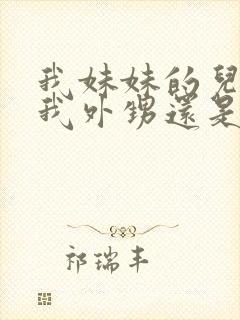 我妹妹的兒
我外甥還是
祁瑞丰